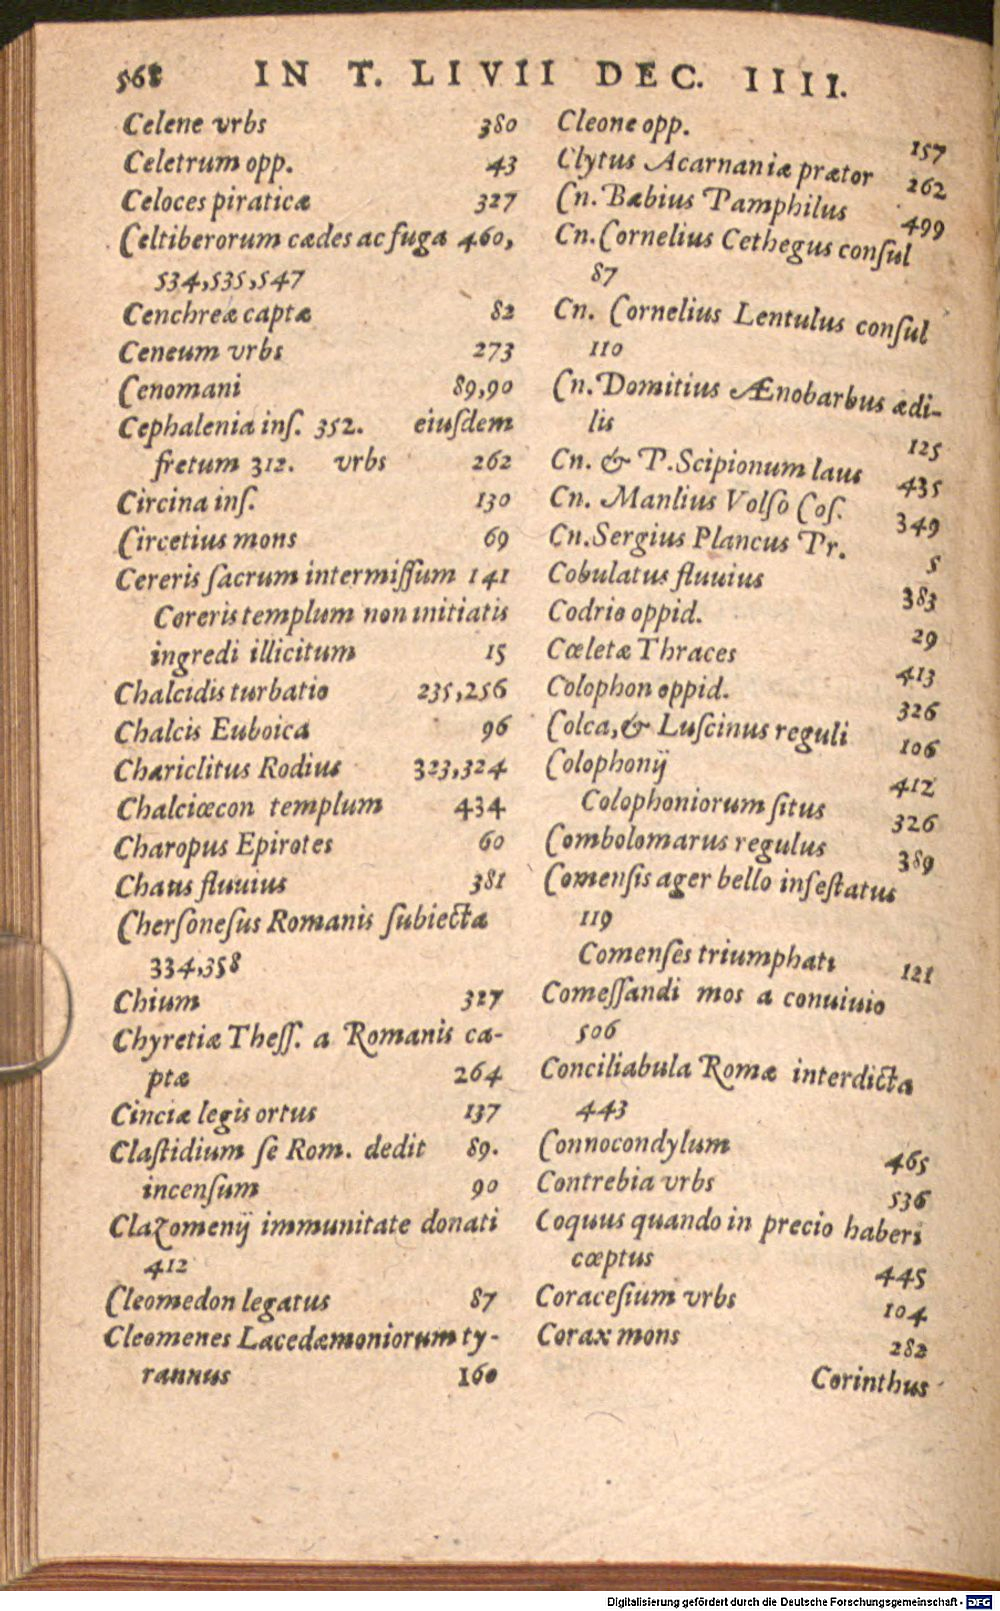 568 IN T. LIVII DEC. IIII.
Celene vrbs 380
Celetrum opp. 43
Celoces piraticæ 327
Celtiberorum cædes ac fuga 460,
534,535,547
Cenchreæ captæ 82
Ceneum vrbs 273
Cenomani 89,90
Cephalenia inſ. 352. eiuſdem
fretum 312. vrbs 262
Circina inſ. 130
Circetius mons 69
Cereris ſacrum intermiſſum 141
Cereris templum non initiatis
ingredi illicitum 15
Chalcidis turbatio 235,256
Chalcis Euboica 96
Chariclitus Rodius 323,324
Chalciœcon templum 434
Charopus Epirotes 60
Chaus fluuius 381
Cherſoneſus Romanis ſubiecta
334,358
Chium 327
Chyretiæ Theſſ. a Romanis ca-
ptæ 264
Cinciæ legis ortus 137
Claſtidium ſe Rom. dedit 89.
incenſum 90
Clazomenij immunitate donati
412
Cleomedon legatus 87
Cleomenes Lacedæmoniorum ty-
rannus 160
Cleone opp. 157
Clytus Acarnaniæ prætor 262
Cn. Bæbius Pamphilus 499
Cn. Cornelius Cethegus conſul
87
Cn. Cornelius Lentulus conſul
110
Cn. Domitius Ænobarbus ædi-
lis 125
Cn. & P. Scipionum laus 435
Cn. Manlius Volſo Coſ. 349
Cn. Sergius Plancus Pr. 5
Cobulatus fluuius 383
Codrio oppid. 29
Cœletæ Thraces 413
Colophon oppid. 326
Colca, & Luſcinus reguli 106
Colophonij 412
Colophoniorum ſitus 326
Combolomarus regulus 389
Comenſis ager bello infeſtatus
119
Comenſes triumphati 121
Comeſſandi mos a conuiuio
506
Conciliabula Romæ interdicta
443
Connocondylum 465
Contrebia vrbs 536
Coquus quando in precio haberi
cœptus 445
Coraceſium vrbs 104
Corax mons 282
Corinthus
Digitalisierung gefördert durch die Deutsche Forschungsgemeinschaft - DFG